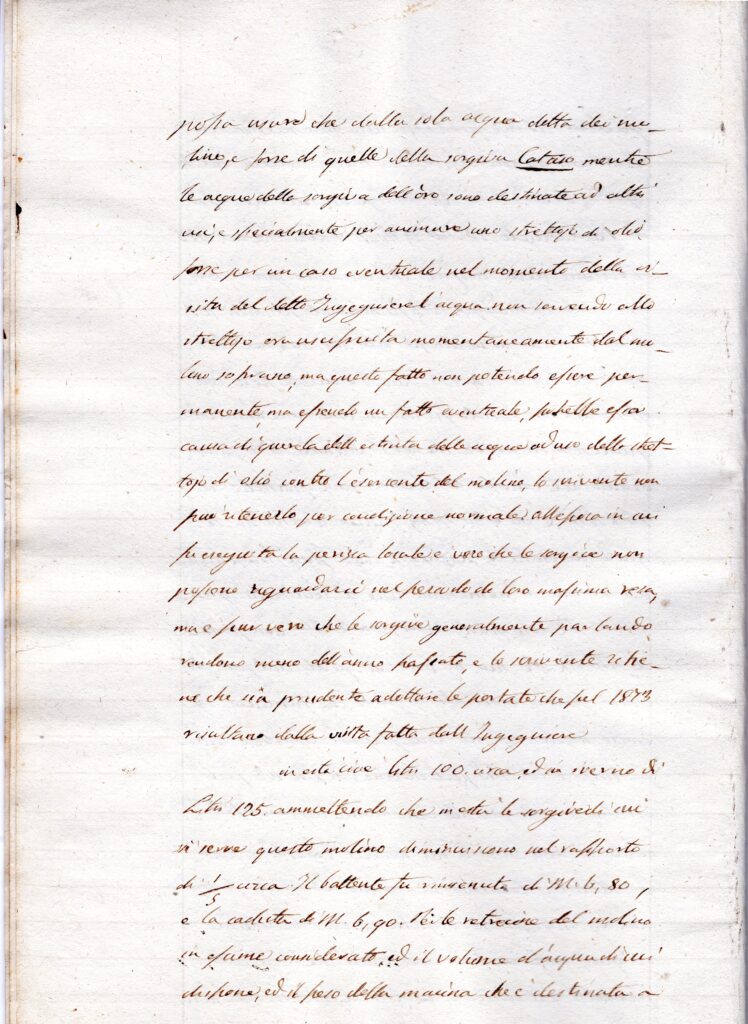 possa usare che dalla sola acqua detta dei mu-
lini, e forse di quelle della sorgiva Cataso mentre
le acque della sorgiva dell'oro sono destinate ad altri
usi, e specialmente per animare uno strettojo di olio,
forse per un caso eventuale nel momento della vi-
sita del detto Ingegniere l'acqua non servendo allo
strettojo era usufruita momentaneamente dal mu-
lino soprano, ma questo fatto non potendo essere per-
manente, ma essendo un fatto eventuale, potrebbe esser
causa di querela dell' delle acque ad uso dello stret-
tojo di olio contro l'esercente del molino, lo scrivente non
può ritenerlo per condizione normale. All'epoca in cui
fu eseguita la perizia locale è vero che le sorgive non
possono riguardarsi nel periodo di loro massima resa,
ma è pur vero che le sorgive generalmente parlando
rendono meno dell'anno passato, e lo scrivente ritie-
ne che sia prudente adottare le portate che pel 1873
risultano dalla visita fatta dall'Ingegniere
in està cioè litri 100. circa, ed in inverno di
Litri 125. ammettendo che in està le sorgive di cui
si serve questo molino diminuiscono nel rapporto
di 1/5 circa. Il battente fu rinvenuto di M. 6,80,
e la caduta di M. 6,90. Per le del molino
in esame considerato, ed il volume d'acqua di cui
dispone, ed il peso della macina che è destinata a